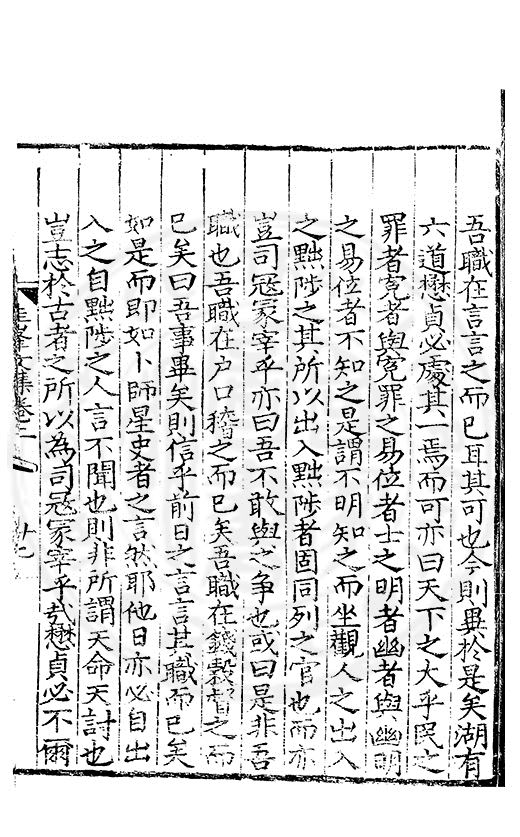 吾職在言言之而已耳其可也今則異於是矣湖有
六道懋貞必處其一焉而可亦曰天下之大乎民之
罪者寃者與寃罪之易位者士之明者幽者與幽明
之易位者不知之是謂不明知之而坐觀人之出入
之黜陟之其所以出入黜陟者固同列之官也而亦
豈司冦冢宰乎亦曰吾不敢與之争也或曰是非吾
職也吾職在户口稽之而已矣吾職在錢穀督之而
已矣曰吾事畢矣則信乎前日之言言其職而已矣
如是而即如卜師星史者之言然耶他日亦必自出
入之自黜陟之人言不聞也則非所謂天命天討也
豈志於古者之所以為司冦冢宰乎哉懋貞必不爾
圭峯文集卷二
十七